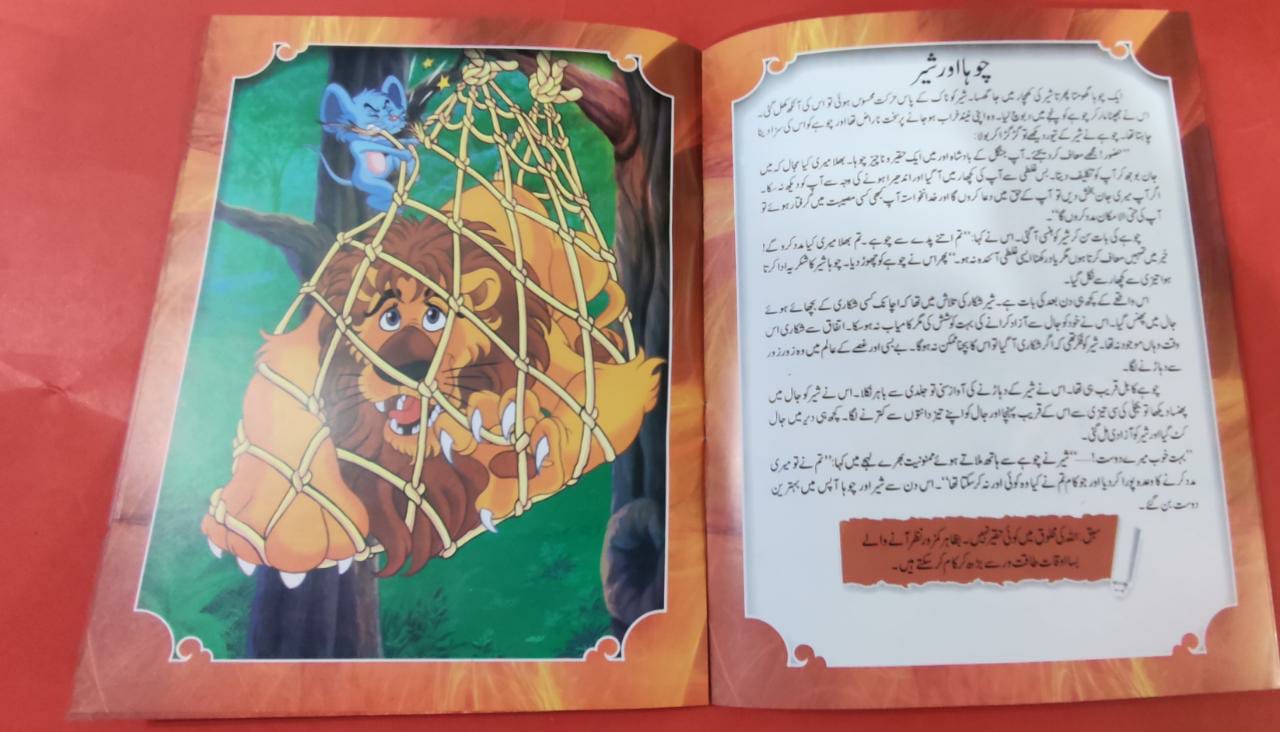 چوہا اور شیر
ایک چوہا گھومتا پھرتا شیر کی کچھار میں جا گھسا۔ شیر کو ناک کے پاس حرکت محسوس ہوئی تو اس کی آنکھ کھل گئی۔
اس نے جھپٹا مار کر چوہے کو پنجے میں دبوچ لیا۔ وہ اپنی نیند خراب ہو جانے پر سخت ناراض تھا اور چوہے کو اس کی سزا دینا
چاہتا تھا۔ چوہے نے شیر کے تیور دیکھے تو گڑگڑا کر بولا:
”حضور! مجھے معاف کر دیجئے۔ آپ جنگل کے بادشاہ اور میں ایک حقیر و ناچیز چوہا۔ بھلا میری کیا مجال کہ میں
جان بوجھ کر آپ کو تکلیف دیتا۔ بس غلطی سے آپ کی کچھار میں آ گیا اور اندھیرا ہونے کی وجہ سے آپ کو دیکھ نہ سکا۔
اگر آپ میری جان بخش دیں تو آپ کے حق میں دعا کروں گا اور خدانخواستہ آپ کبھی کسی مصیبت میں گرفتار ہوئے تو
آپ کی حتی الامکان مدد کروں گا“۔
چوہے کی بات سن کر شیر کو ہنسی آ گئی۔ اس نے کہا: ”تم اتنے پدے سے چوہے۔ تم بھلا میری کیا مدد کرو گے!
خیر میں تمہیں معاف کرتا ہوں مگر یاد رکھنا ایسی غلطی آئندہ نہ ہو۔“ پھر اس نے چوہے کو چھوڑ دیا۔ چوہا شیر کا شکریہ ادا کرتا
ہوا تیزی سے کچھار سے نکل گیا۔
اس واقعے کے کچھ ہی دن بعد کی بات ہے۔ شیر شکار کی تلاش میں تھا کہ اچانک کسی شکاری کے بچھائے ہوئے
جال میں پھنس گیا۔ اس نے خود کو جال سے آزاد کرانے کی بہت کوشش کی مگر کامیاب نہ ہو سکا۔ اتفاق سے شکاری اس
وقت وہاں موجود نہ تھا۔ شیر کو فکر تھی کہ اگر شکاری آ گیا تو اس کا بچنا ممکن نہ ہوگا۔ بے بسی اور غصے کے عالم میں وہ زور زور
سے دہاڑنے لگا۔
چوہے کا بل قریب ہی تھا۔ اس نے شیر کے دہاڑنے کی آواز سنی تو جلدی سے باہر نکلا۔ اس نے شیر کو جال میں
پھنسا دیکھا تو بجلی کی سی تیزی سے اس کے قریب پہنچا اور جال کو اپنے تیز دانتوں سے کترنے لگا۔ کچھ ہی دیر میں جال
کٹ گیا اور شیر کو آزادی مل گئی۔
”بہت خوب میرے دوست!—“ شیر نے چوہے سے ہاتھ ملاتے ہوئے ممنونیت بھرے لہجے میں کہا: ”تم نے تو میری
مدد کرنے کا وعدہ پورا کر دیا اور جو کام تم نے کیا وہ کوئی اور نہ کر سکتا تھا“۔ اس دن سے شیر اور چوہا آپس میں بہترین
دوست بن گئے۔
سبق: اللہ کی مخلوق میں کوئی حقیر نہیں۔ بظاہر کمزور نظر آنے والے
بسا اوقات طاقت ور سے بڑھ کر کام کر سکتے ہیں۔